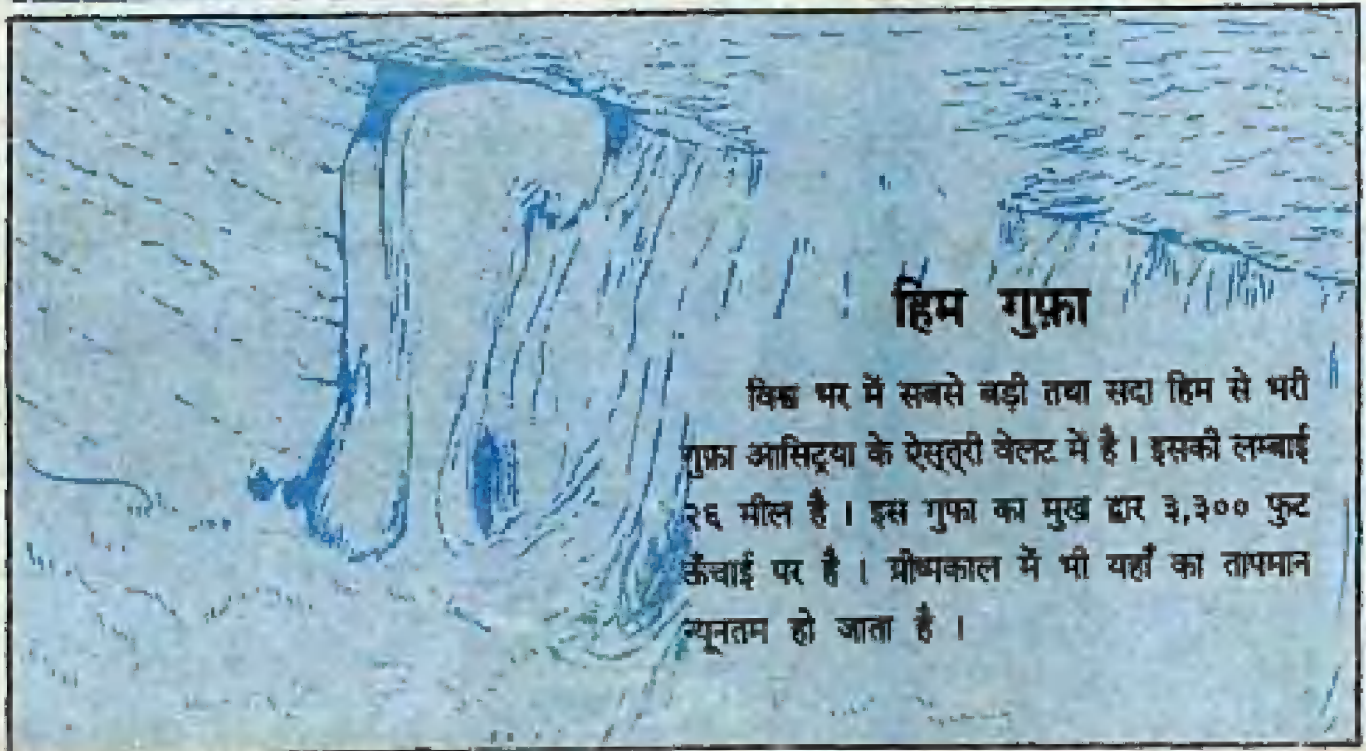 हिम गुफ़ा
विश्व भर में सबसे बड़ी तथा सदा हिम से भरी
गुफ़ा आसिट्रया के ऐसूत्री वेलट में है । इसकी लम्बाई
२६ मील है । इस गुफा का मुख द्वार ३,३०० फुट
ऊँचाई पर है । ग्रीष्मकाल में भी यहाँ का तापमान
न्यूनतम हो जाता है ।